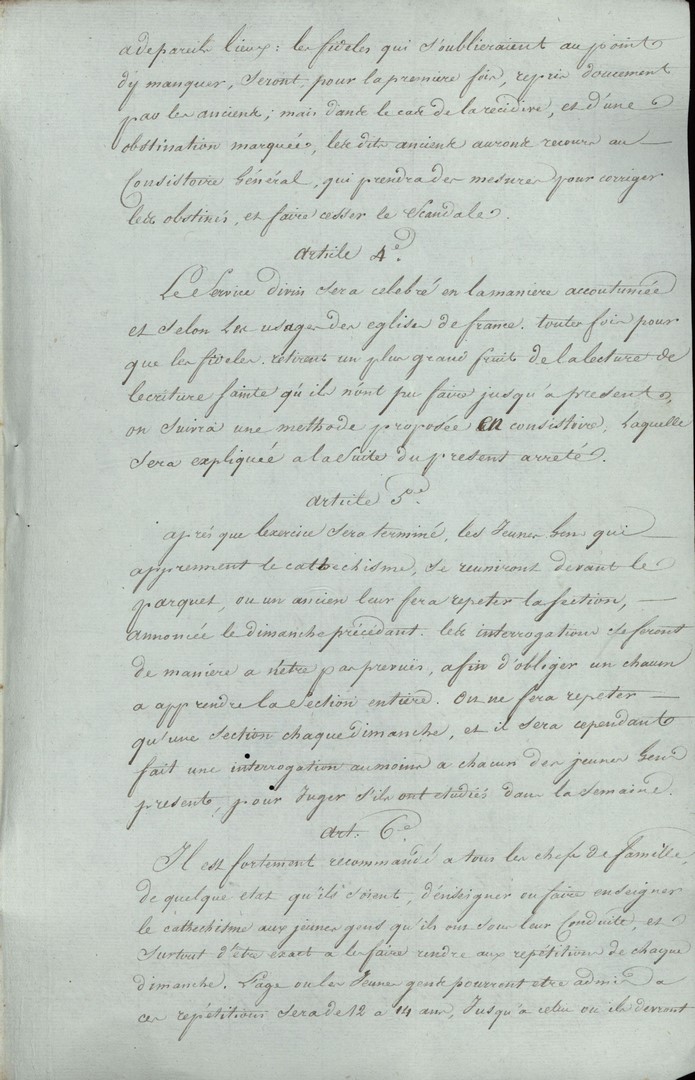 a de pareils lieux: les fideles qui s'oublieraient au point
d'y manquer, seront, pour la premiere fois, repris doucement
par les anciens; mais dans le cas de la recidive, et d'une
obstination marquée, les dits anciens auront recours au
Consistoire Général, qui prendra des mesures pour corriger
les obstinés, et faire cesser le Scandale.
article 4e.
Le Service divin sera celebré en la maniere accoutumée
et selon les usages des eglises de france. toutes fois pour
que les fideles retirent un plus grand fruit de la lecture de
lecriture sainte qu'ils n'ont pu faire jusqu'a present,
on suivra une methode proposée en consistoire, Laquelle
sera expliqueé a la suite du present arreté.
article 5e.
aprés que lexercice sera terminé, les Jeunes Gens qui
apprennent le cathechisme, se reuniront devant le
parquet, ou un ancien leur fera repeter la section,
annoncée le dimanche précédant. les interrogations se feront
de maniere a nètre pas prevues, afin d'obliger un chacun
a apprendre la Section entiere. On ne fera repeter
qu'une section chaque Dimanche, et il sera cependant
fait une interrogation au moins a chacun des jeunes Gens
presents, pour Juger s'ils ont etudiés dans la Semaine.
Art. 6e.
Il est fortement recommandé a tous les chefs de famille,
de quelque etat qu'ils soient, d'enseigner ou faire enseigner
le cathechisme aux jeunes gens qu'ils ont sous leur Conduite, et
surtout d'être exact a les faire rendre aux repétitions de chaque
dimanche. L'age ou les Jeunes gens pourront etre admis a
ces repétitions sera de 12 a 14 ans, Jusqu'a celui ou ils devront